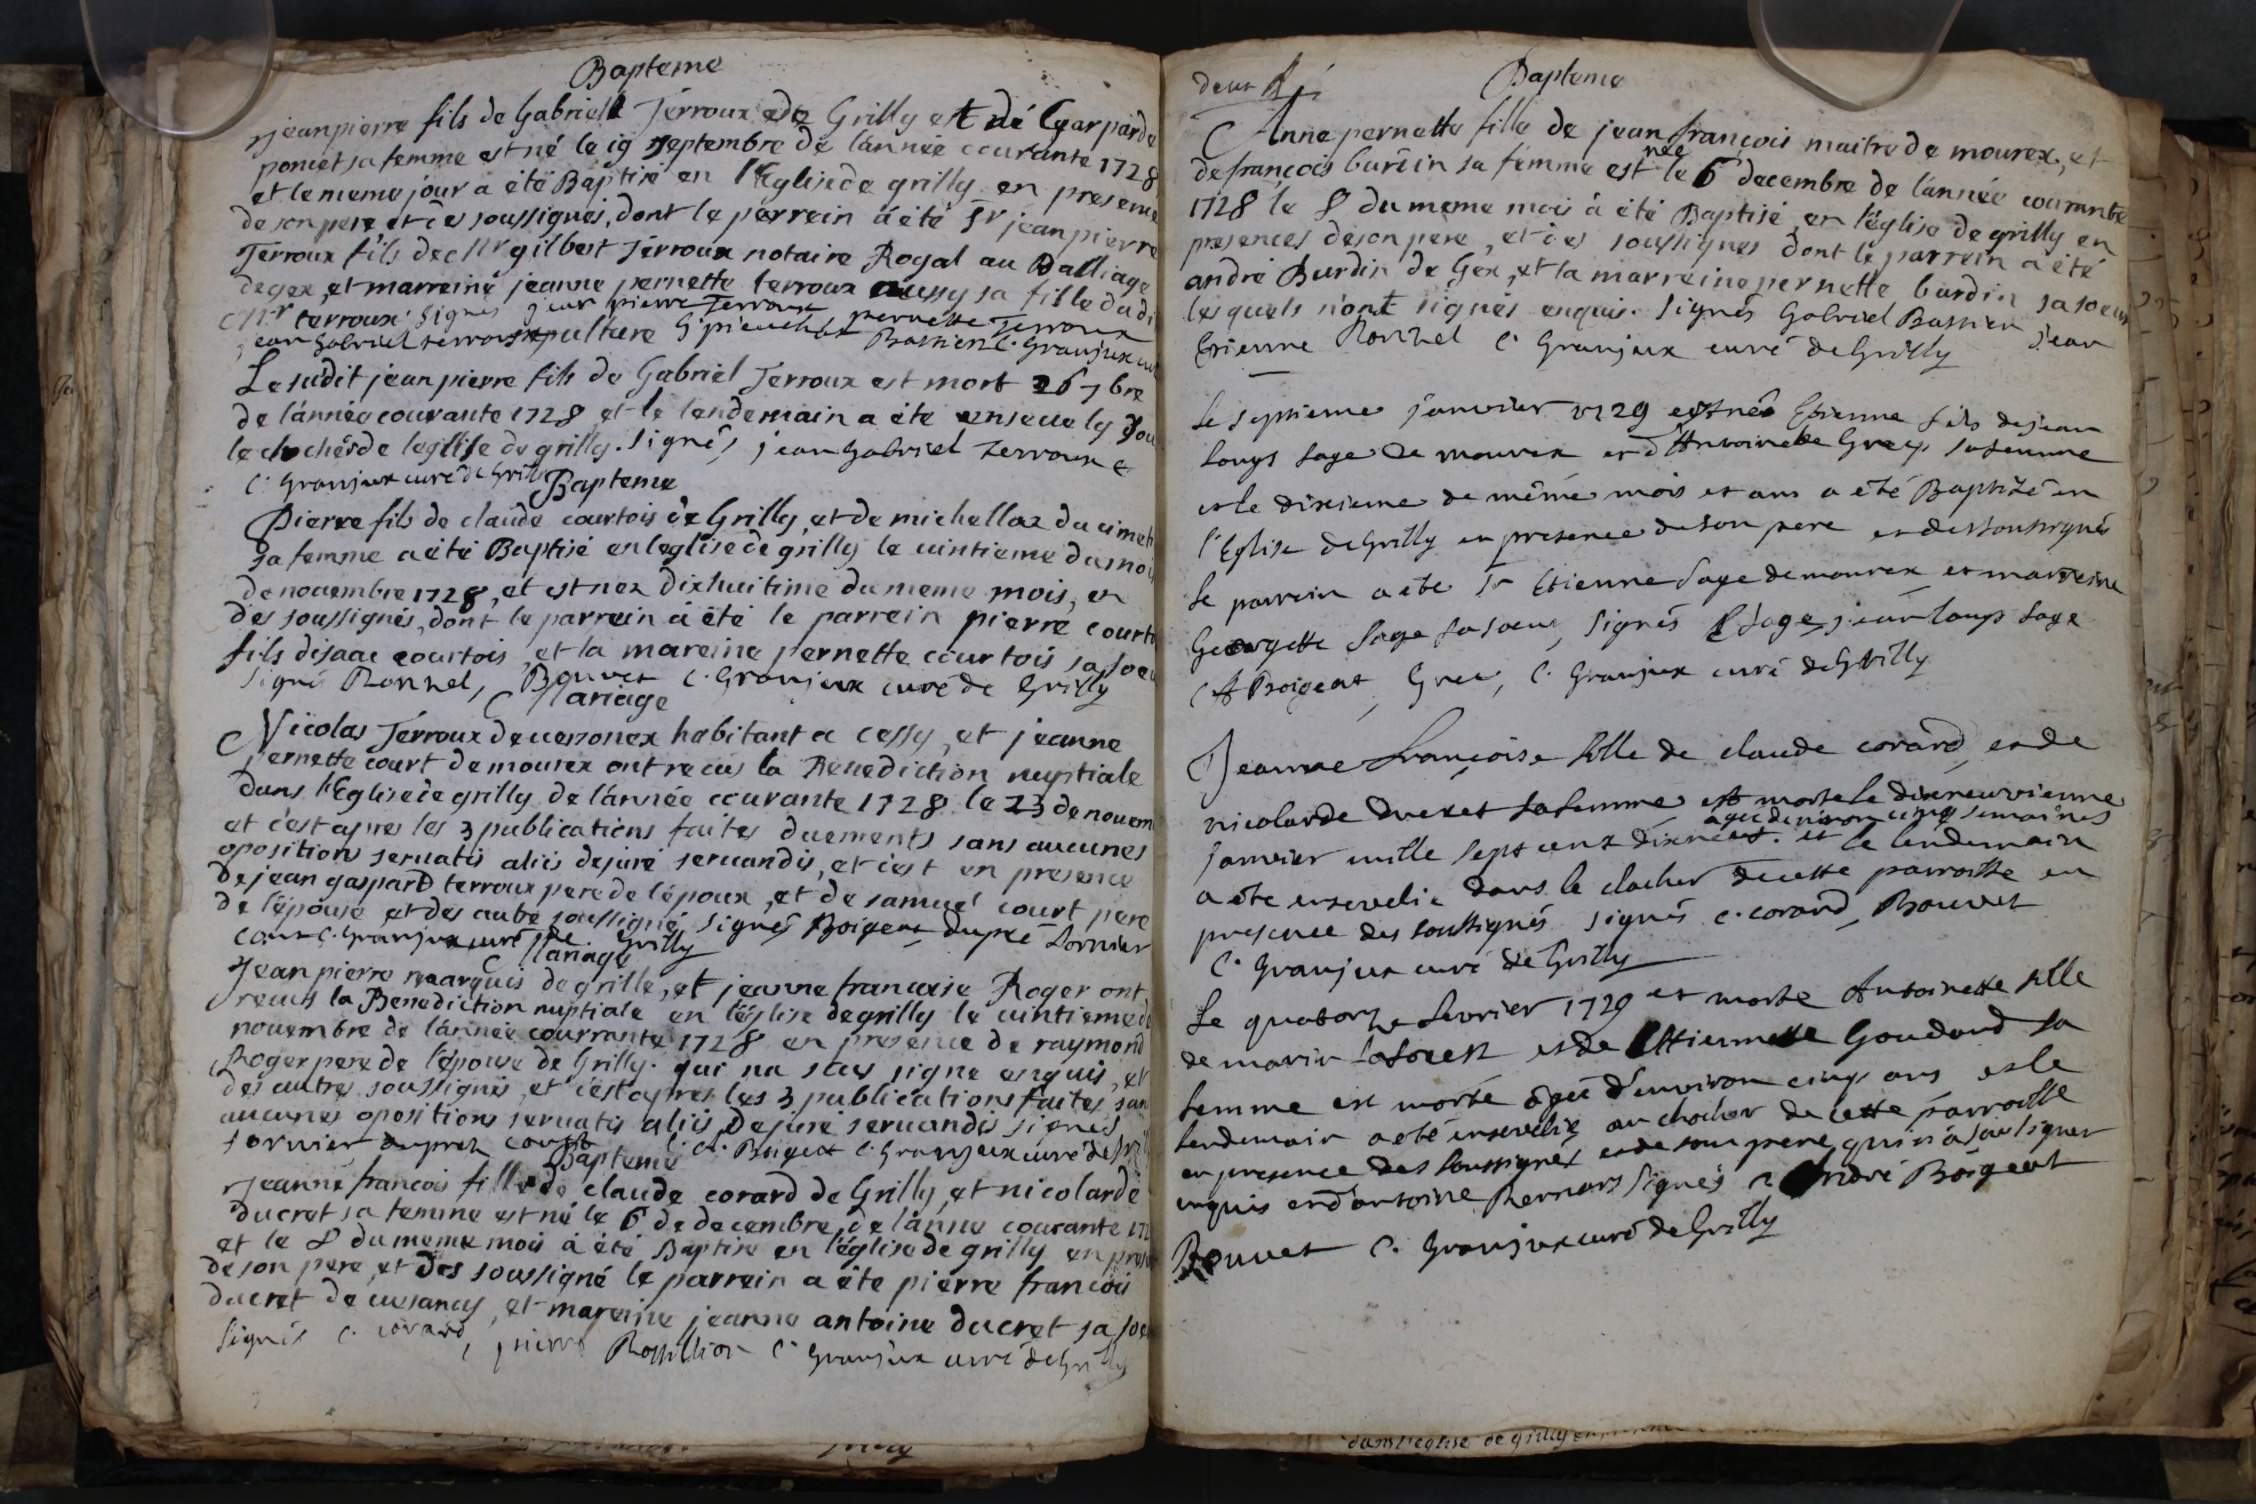 Bapteme
jeanpierre fils de Gabriel Terroux de Grilly et de Gasparde
poncet sa femme est né le 19 septembre de lánnée courante 1728
et le meme jour a été Baptisé en l'Eglise de grilly en presence
de son pere et des soussignés, dont le parrein à été Sr jean pierre
Terroux fils de Mr gilbert Terroux notaire Royal au Balliage
de gex, et marreine jeanne pernette terroux aussy sa fille dudi
Mr terroux signés jean pierre Terroux pernette Terroux
jean Gabriel terroux Bassien C. Granjux curé
sepulture
Le sudit jean pierre fils de Gabriel Terroux est mort 26 7bre
de lánnée courante 1728 et le lendemain a été enseuely sou
le clochér de leglise de grilly. signés jean Gabriel Terroux e
C. Granjux curé de Grilly
Bapteme
Pierre fils de claude courtois de Grilly, et de michellaz du cimeti
sa femme a été Baptisé en leglise de grilly le uintieme du moi
de nouembre 1728, et est nez dixhuitime du meme mois, en
des soussignés, dont le parrein à été le parrein pierre courto
fils disaac courtois, et la mareine pernette courtois sa soeu
signé Ronzel, Bouvet C. Granjux curé de Grilly
Mariage
Nicolas Terroux de uersonex habitant a cessy, et jeanne
pernette court de mourex ont recus la Benediction nuptiale
dans l'Eglise de grilly de lánnée courante 1728 le 23 de nouem
et c'est apres les 3 publications faites duements sans aucunes
opositions seruatis aliis dejure seruandis, et c'est en presence
de jean gaspard terroux pere de lépoux, et de samuel court pere
de l'épouse et des autre soussigné signés Boigeat dupré Sornier
court C. Granjux curé de Grilly
Mariage
Jean pierre marquis de grille, et jeanne francoise Roger ont
recus la Benediction nuptiale en l'église de grilly le uintieme de
nouembre de lánnée courrante 1728 en presence de raymond
Roger pere de l'épouse de Grilly. qui na sceu signe enquis, et
des autres soussignés, et c'est apres les 3 publications faites san
aucunes opositions seruatis aliis dejure seruandis signés
sornier duprez court Boigeat C. Granjux curé de Grilly
Bapteme
jeanne francois fille de claude corard de Grilly, et nicolarde
ducret sa femme est né le 6 de decembre de lánne courante 172
et le 8 du meme mois à été Baptise en l'église de grilly en prese
de son pere, et des soussigné le parrein a été pierre francois
ducret de uesancy, et mareine jeanne antoine ducret sa soeu
signés C. corard, pierre Rossillion C. Granjux curé de Grilly
Bapteme
Anne pernette fille de jean françois maitre de mourex, et
de françois burdin sa femme est née le 6 decembre de lánnée courante
1728 le 8 du meme mois à été Baptisé en l'église de grilly en
presences de son pere, et des soussignes dont le parrein a été
andré Burdin de Gex, et la marreine pernette burdin sa soeur
lesquels n'ont signés enquis. signés Gabriel Bassien jean
Etienne Ronzel C. Granjux curé de Grilly
Le septieme janvier 1729 est né Etienne fils de jean
Louys Sage de mourex et d'Antoinette Grecy sa femme
et le dixieme de même mois et an a été Baptizé en
l'Eglise de Grilly en presence de son pere et des soussignés
Le parrein a ete Sr Etienne Sage de mourex et marreine
Georgette Sage sa soeur, signés E Sage, jean louys Sage
Boigeat, Grec, C. Granjux curé de Grilly
Jeanne Françoise fille de claude corard, et de
nicolarde ducret sa femme est morte le dixneuvieme
agée denviron cinq semaines
janvier mille sept cent dixneuf. et le lendemain
a ete ensevelie dans le clocher de cette parroisse en
presence des soussignés signés C. corard, Bouvet
C. Granjux curé de Grilly
Le quatorze fevrier 1729 est morte Antoinette fille
de marin et de Etiennette Goudard sa
femme est morte agée d'environ cinq ans et le
lendemain a eté ensevelie au clocher de cette parroisse
en presence des soussignés et de son pere qui n'a sceu signer
enquis et d'antoine Signés André Boigeat
Bouvet C. Granjux curé de Grilly
dans l'eglise de grilly